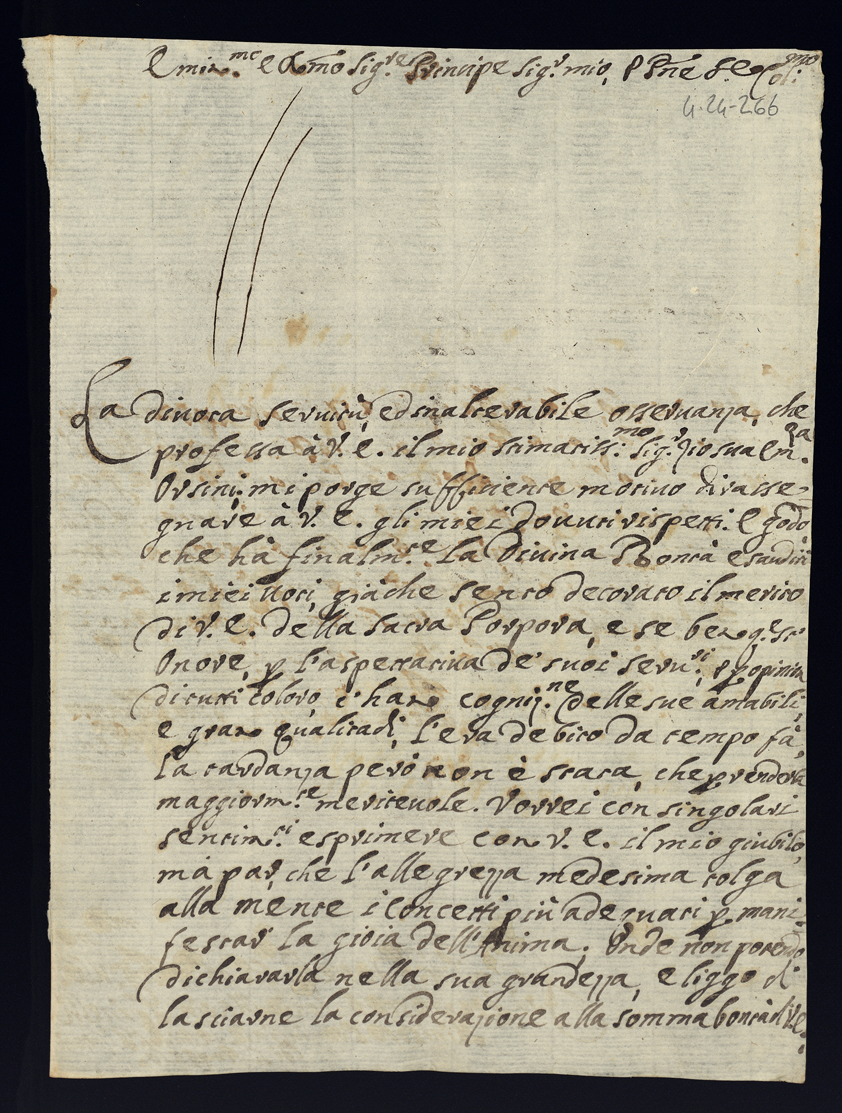 Emin.mo e Rmo Sig.re Principe Sig.r mio, e Pne Col.mo
4.24-266
La divota servitù, ed inalterabile osservanza, che
professa à V. E. il mio stimatiss.mo Sig.r Zio sua Em.za
Orsini, mi porge sufficiente motivo di rasse-
gnare à V. E. gli miei dovuti rispetti. E godo,
che hà finalm.te la Divina Bontà esauditi
i miei voti, già che sento decorato il merito
di V. E. della Sacra Porpora, e se ben q.esto
Onore, p l'aspettativa de' suoi serv.ri, e p opinion
di tutti coloro, c'han cogniz.ne delle sue amabili,
e gran qualitadi, l'era debito da tempo fà,
la tardanza però non è stata, che p renderla
maggiorm.te meritevole. Vorrei con singolari
sentim.ti esprimere con V. E. il mio giubilo,
mà par, che l'allegrezza medesima tolga
alla mente i concetti più adequati p mani-
festar la gioia dell'Anima; Onde non potendo
dichiararla nella sua grandezza, eliggo di
lasciarne la considerazione alla somma bontà di V. E.